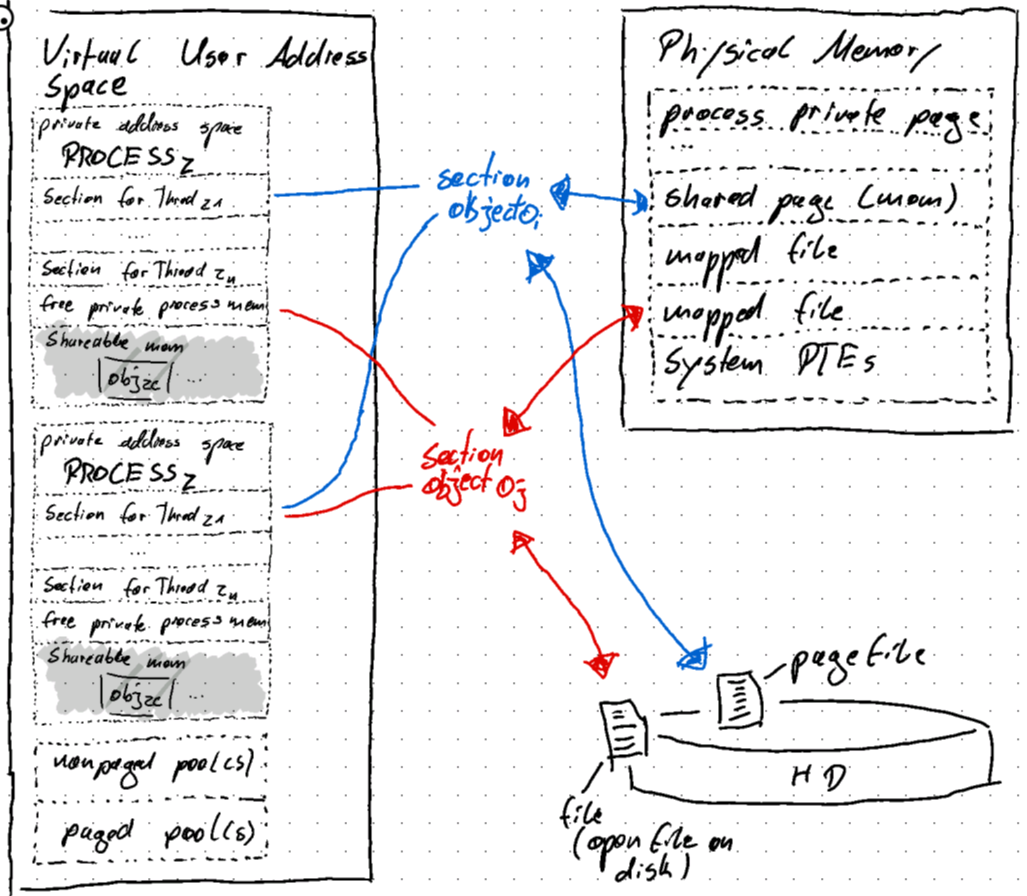 Virtual User Address
Space
private address space
PROCESS z
Section for Thread z1
....
Section for Thread zn
free private process mem
Shareable mem
obj zc ...
private address space
PROCESS z
Section for Thread z1
...
Section for Thread zn
free private process mem
Shareable mem
obj zc ...
nonpaged pool(s)
paged pool(s)
section
object Oi
section
object Oj
Physical Memory
process private page
...
shared page (mem)
mapped file
mapped file
System PTEs
pagefile
HD
file
(open file on
disk)